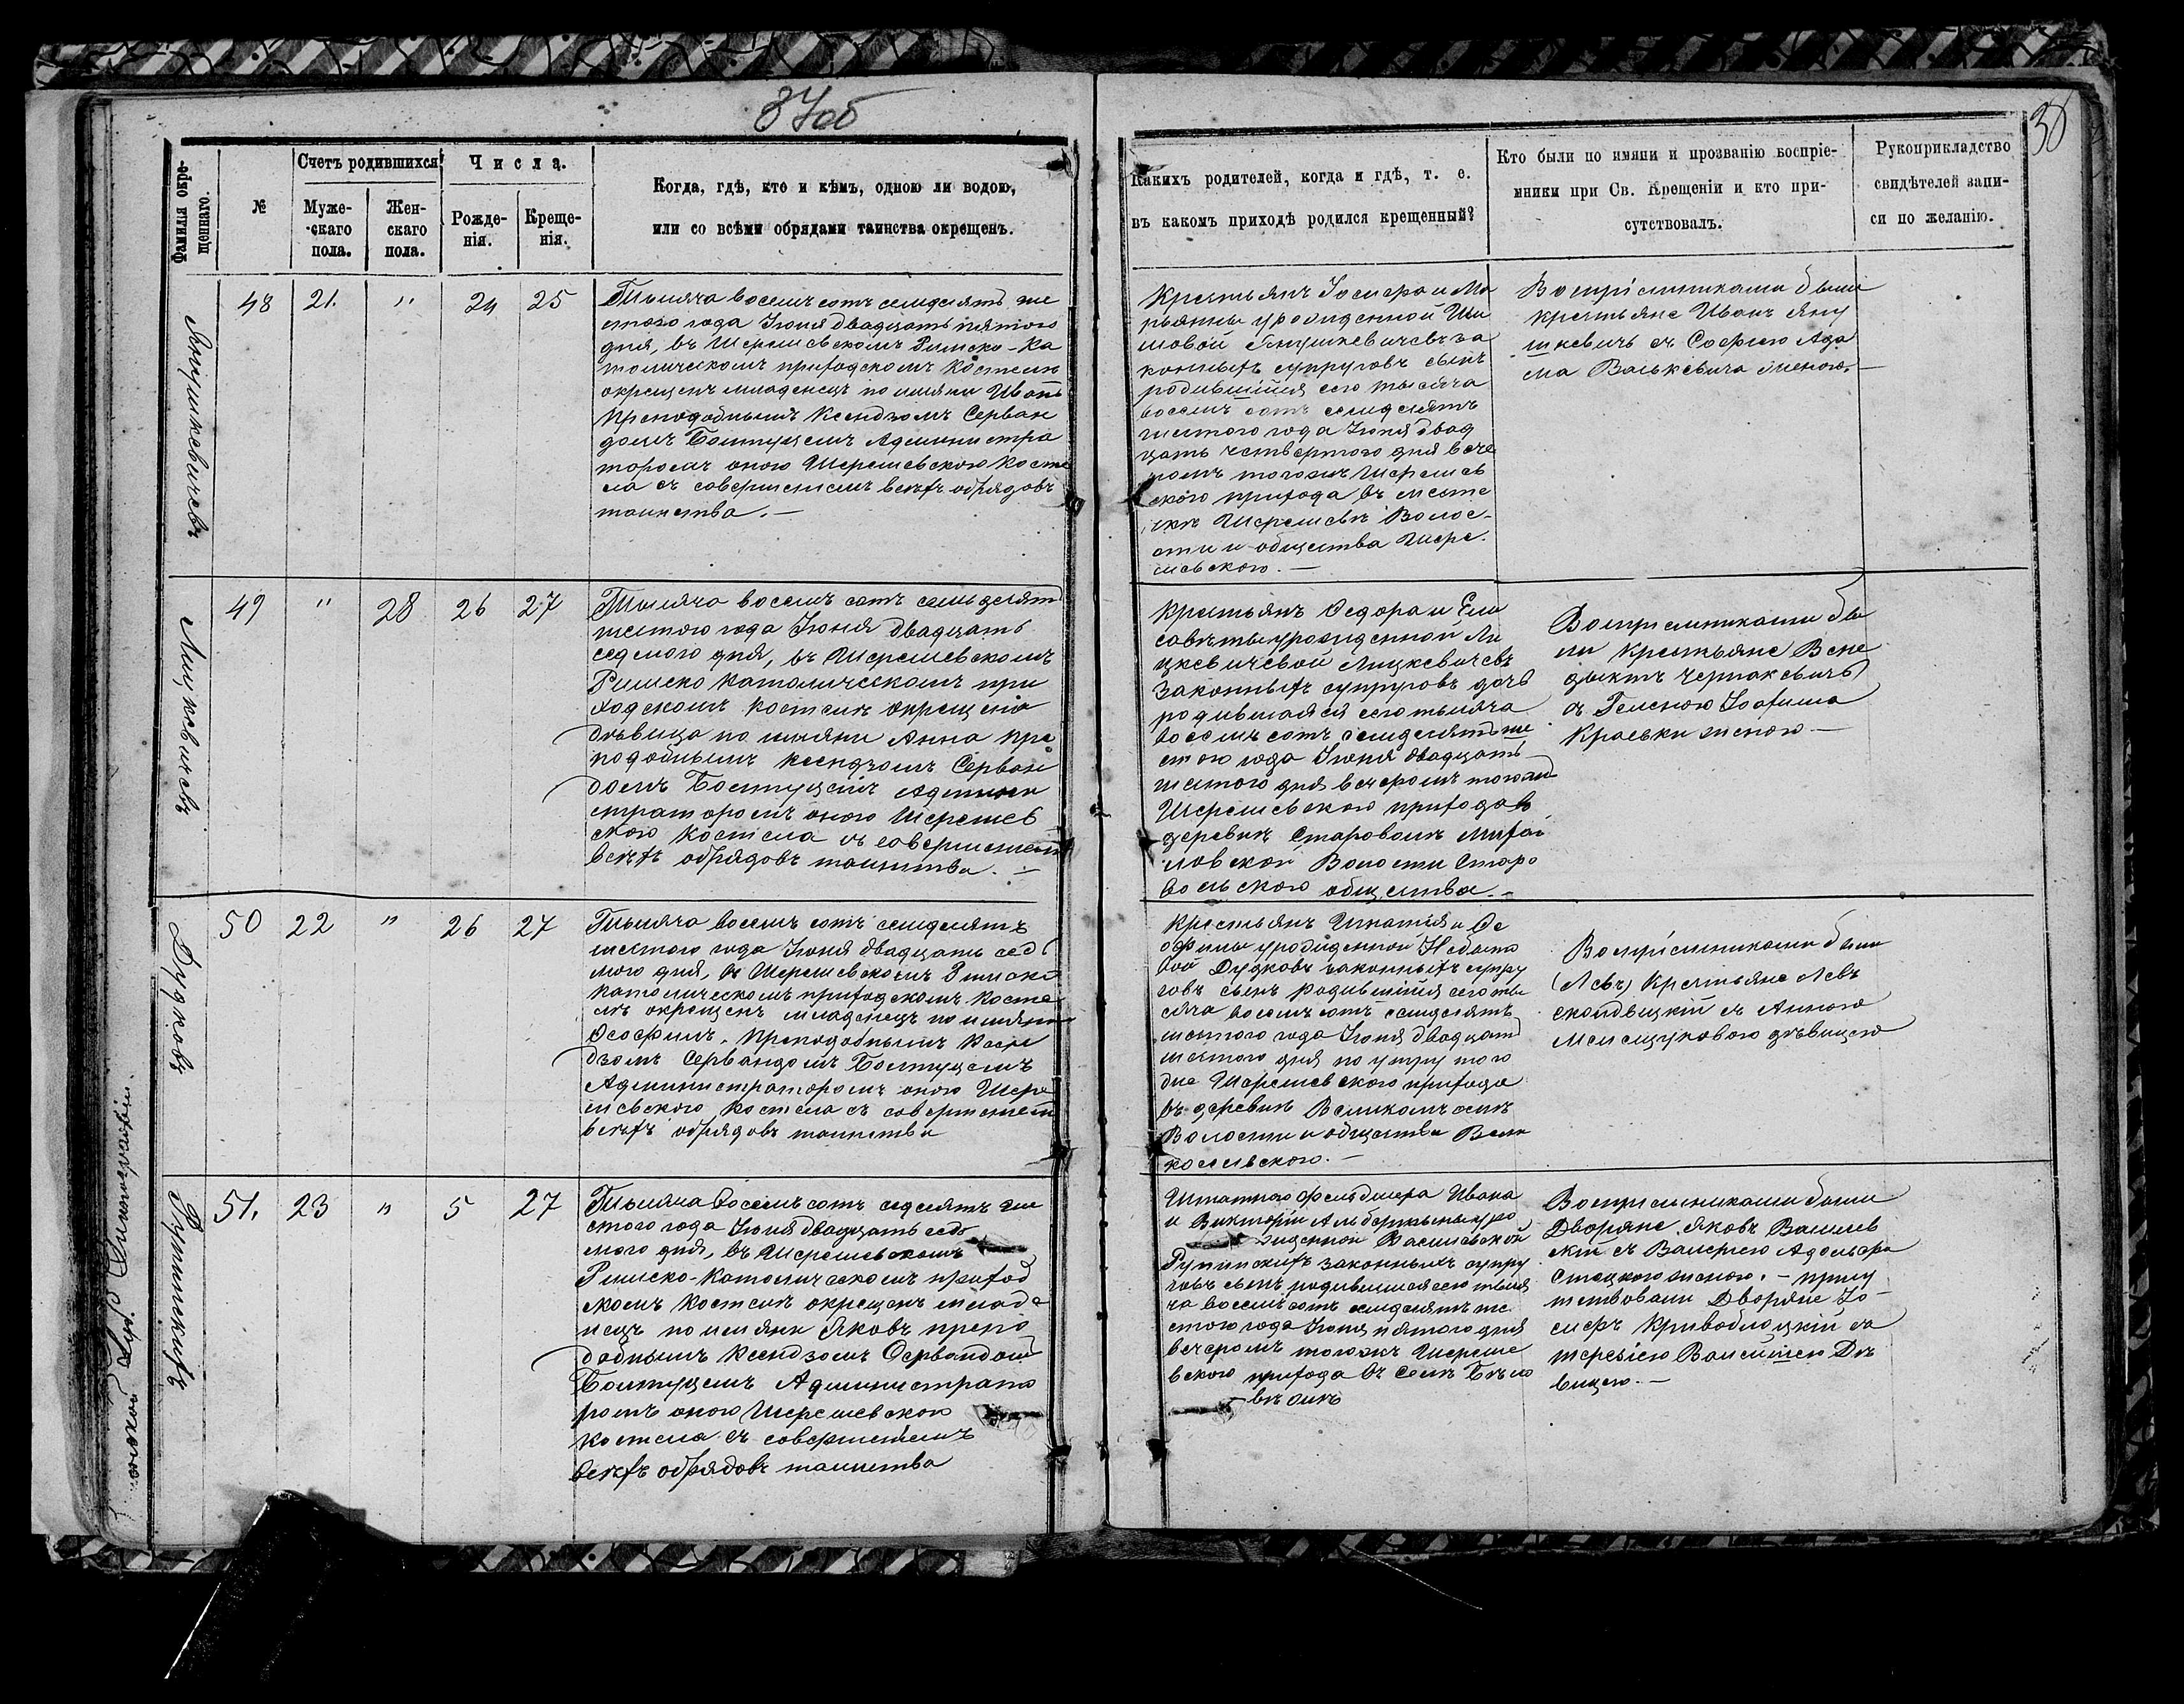 37об
38
Фамилія окре-
щеннаго.
№
Счетъ родившихся
Муже-
скаго
пола.
Жен-
скаго
пола.
Числа.
Рожде-
нія.
Креще-
нія.
Когда, гдѣ, кто и кѣмъ, одною ли водою,
или со всѣми обрядами таинства окрещенъ.
Какихъ родителей, когда и гдѣ, т. е.
въ какомъ приходѣ родился крещенный?
Кто были по имяни и прозванію воспріе-
мники при Св. Крещеніи и кто при-
сутствовалъ.
Рукоприкладство
свидѣтелей запи-
си по желанію.
Янушкевичевъ
48 21. " 24 25
Тысяча восемь сотъ семдесятъ ше
стого года Іюня двадцать пятого
дня, въ Шерешевскомъ Римско-Ка
толическомъ приходскомъ Костелѣ
окрещенъ младенецъ по имяни Иванъ
Преподобнымъ Ксендзомъ Серван
домъ Болтуцемъ Администра
торомъ оного Шерешевского Косте
ла съ совершеніемъ всѣхъ обрядовъ
таинства. —
Крестьянъ Іосифа и Ма
рьянны урожденной Ши
мовой Янушкевичевъ за
конныхъ супруговъ сынъ
родившійся сего тысяча
восемь сотъ семдесятъ
шестого года Іюня двад
цать четвертого дня вече
ромъ тогожъ Шерешев
ского прихода въ месте
чкѣ Шерешевѣ Волос-
сти и общества Шере-
шевского. —
Воспріемниками были
крестьяне Иванъ Яну
шкевичъ съ Софіею Ада
ма Валькевича женою. —
Лицкевичевъ
49 " 28 26 27
Тысяча восемь сотъ семьдесятъ
шестого года Іюня двадцать
седмого дня, въ Шерешевскомъ
Римско Католическомъ при
ходскомъ Костелѣ окрещена
дѣвица по имяни Анна пре
подобнымъ Ксендзомъ Серван
домъ Болтуцемъ Админи
страторомъ оного Шерешев
ского Костела съ совершеніемъ
всѣхъ обрядовъ таинства. —
Крестьянъ Ѳедора и Ели
саветы урожденной Ли
цкевичевой Лицкевичевъ
Законныхъ супруговъ дочь
родившаяся сего тысяча
восемь сотъ семдесятъ ше
стого года Іюня двадцать
шестого дня вечеромъ тогожъ
Шерешевского прихода въ
деревнѣ Староволѣ Михай
ловской Волости Старо
вольского общества. —
Воспріемниками бы
ли Крестьяне Вене
дыктъ Чермакевичъ
съ Геленою Іоахима
Краевки женою —
Дудковъ
50 22 " 26 27
Тысяча восемь сотъ семдесятъ
шестого года Іюня двадцать сед
мого дня, въ Шерешевскомъ Римско
Католическомъ приходскомъ Косте
лѣ окрещенъ младенецъ по имяни
Ѳеофилъ, Преподобнымъ Ксен
дзомъ Сервандомъ Болтуцемъ
Администраторомъ оного Шере
шевского Костела съ совершеніемъ
всѣхъ обрядовъ таинства
Крестьянъ Игнатія и Ѳе
офилы урожденной
вой Дудковъ законныхъ супру
говъ сынъ родившійся сего ты
сяча восемь сотъ семдесятъ
шестого года Іюня двадцать
шестого дня по утру того
дня Шерешевского прихода
въ деревнѣ Великомъ селѣ
Волости и общества Вели
косельского. —
Воспріемниками были
(Левъ) Крестьяне Левъ
съ Анною
дѣвицею
Рупинскихъ
51. 23 " 5 27
Тысяча восемь сотъ седсятъ ше
стого года Іюня двадцать сед
мого дня, въ Шерешевскомъ
Римско-Католическомъ приход
скомъ Костелѣ окрещенъ младе
нецъ по имяни Яковъ препо
добнымъ Ксендзомъ Сервандомъ
Болтуцемъ Администрато
ромъ оного Шерешевского
Костела съ совершеніемъ
всѣхъ обрядовъ таинства
Штатного Фельдшера Ивана
и Викторіи Альбертыны уро
жденной Василевской
Рупинскихъ законныхъ супру
говъ сынъ родившійся сего тыся
ча восемь сотъ семдесятъ ше
стого года Іюня пятого дня
вечеромъ тогожъ Шереше
вского прихода въ селѣ Бѣло
вѣжѣ
Воспріемниками были
Дворяне Яковъ Василев
скій съ Валеріею Адольфа
женою. — прису
тствовали Дворяне Іо-
сифъ Кривоблоцкій съ
терезіею дѣ
вицею. —